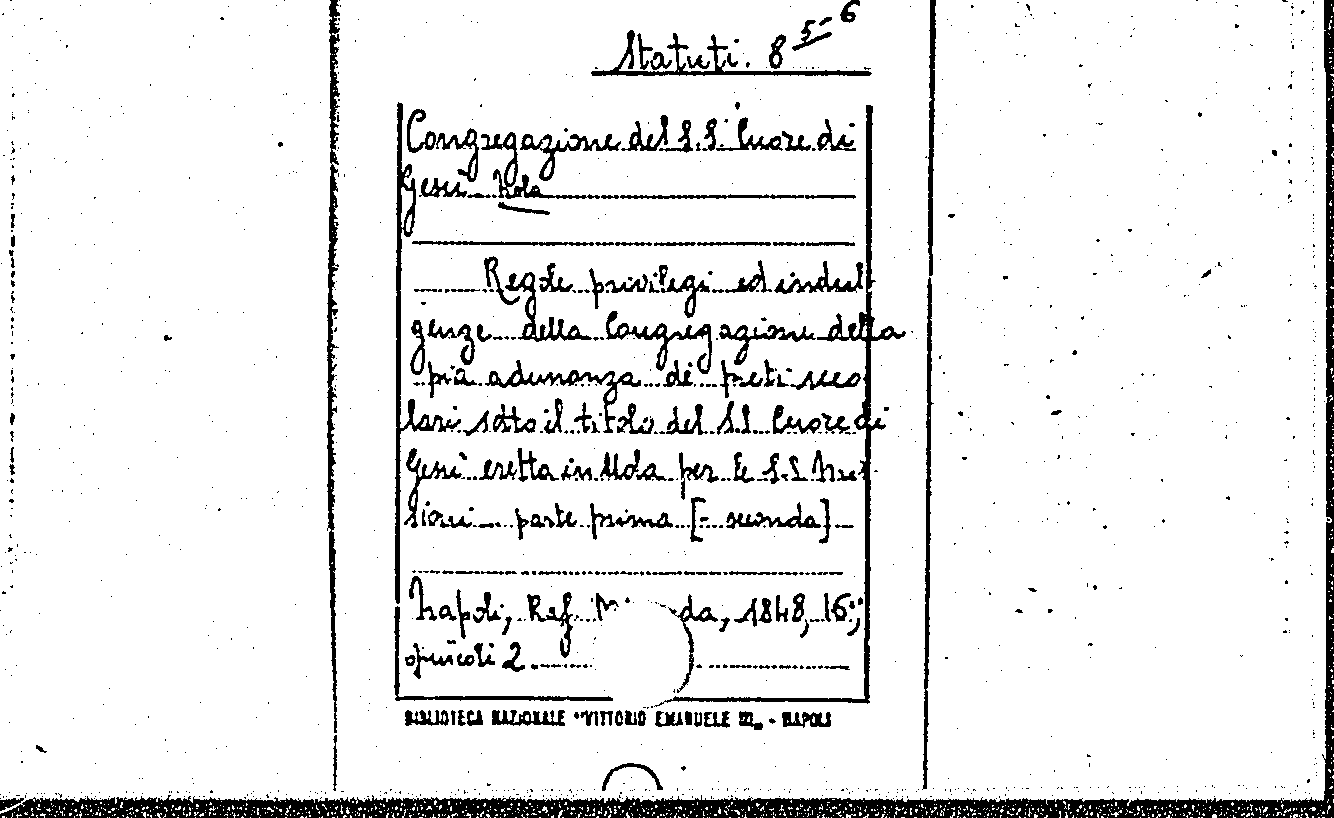 Statuti. 8 5-6
Congregazione del S.S. Cuore di
Gesù - Nola
Regole privilegi ed indul-
genze della Congregazione della
pia adunanza de' preti seco-
lari sotto il titolo del S.S. Cuore di
Gesù eretta in Nola per le S.S. Mis-
sioni - parte prima [- seconda] -
Napoli, Ref. da, 1848, 16°;
opuscoli 2.
BIBLIOTECA NAZIONALE "VITTORIO EMANUELE III„ - NAPOLI